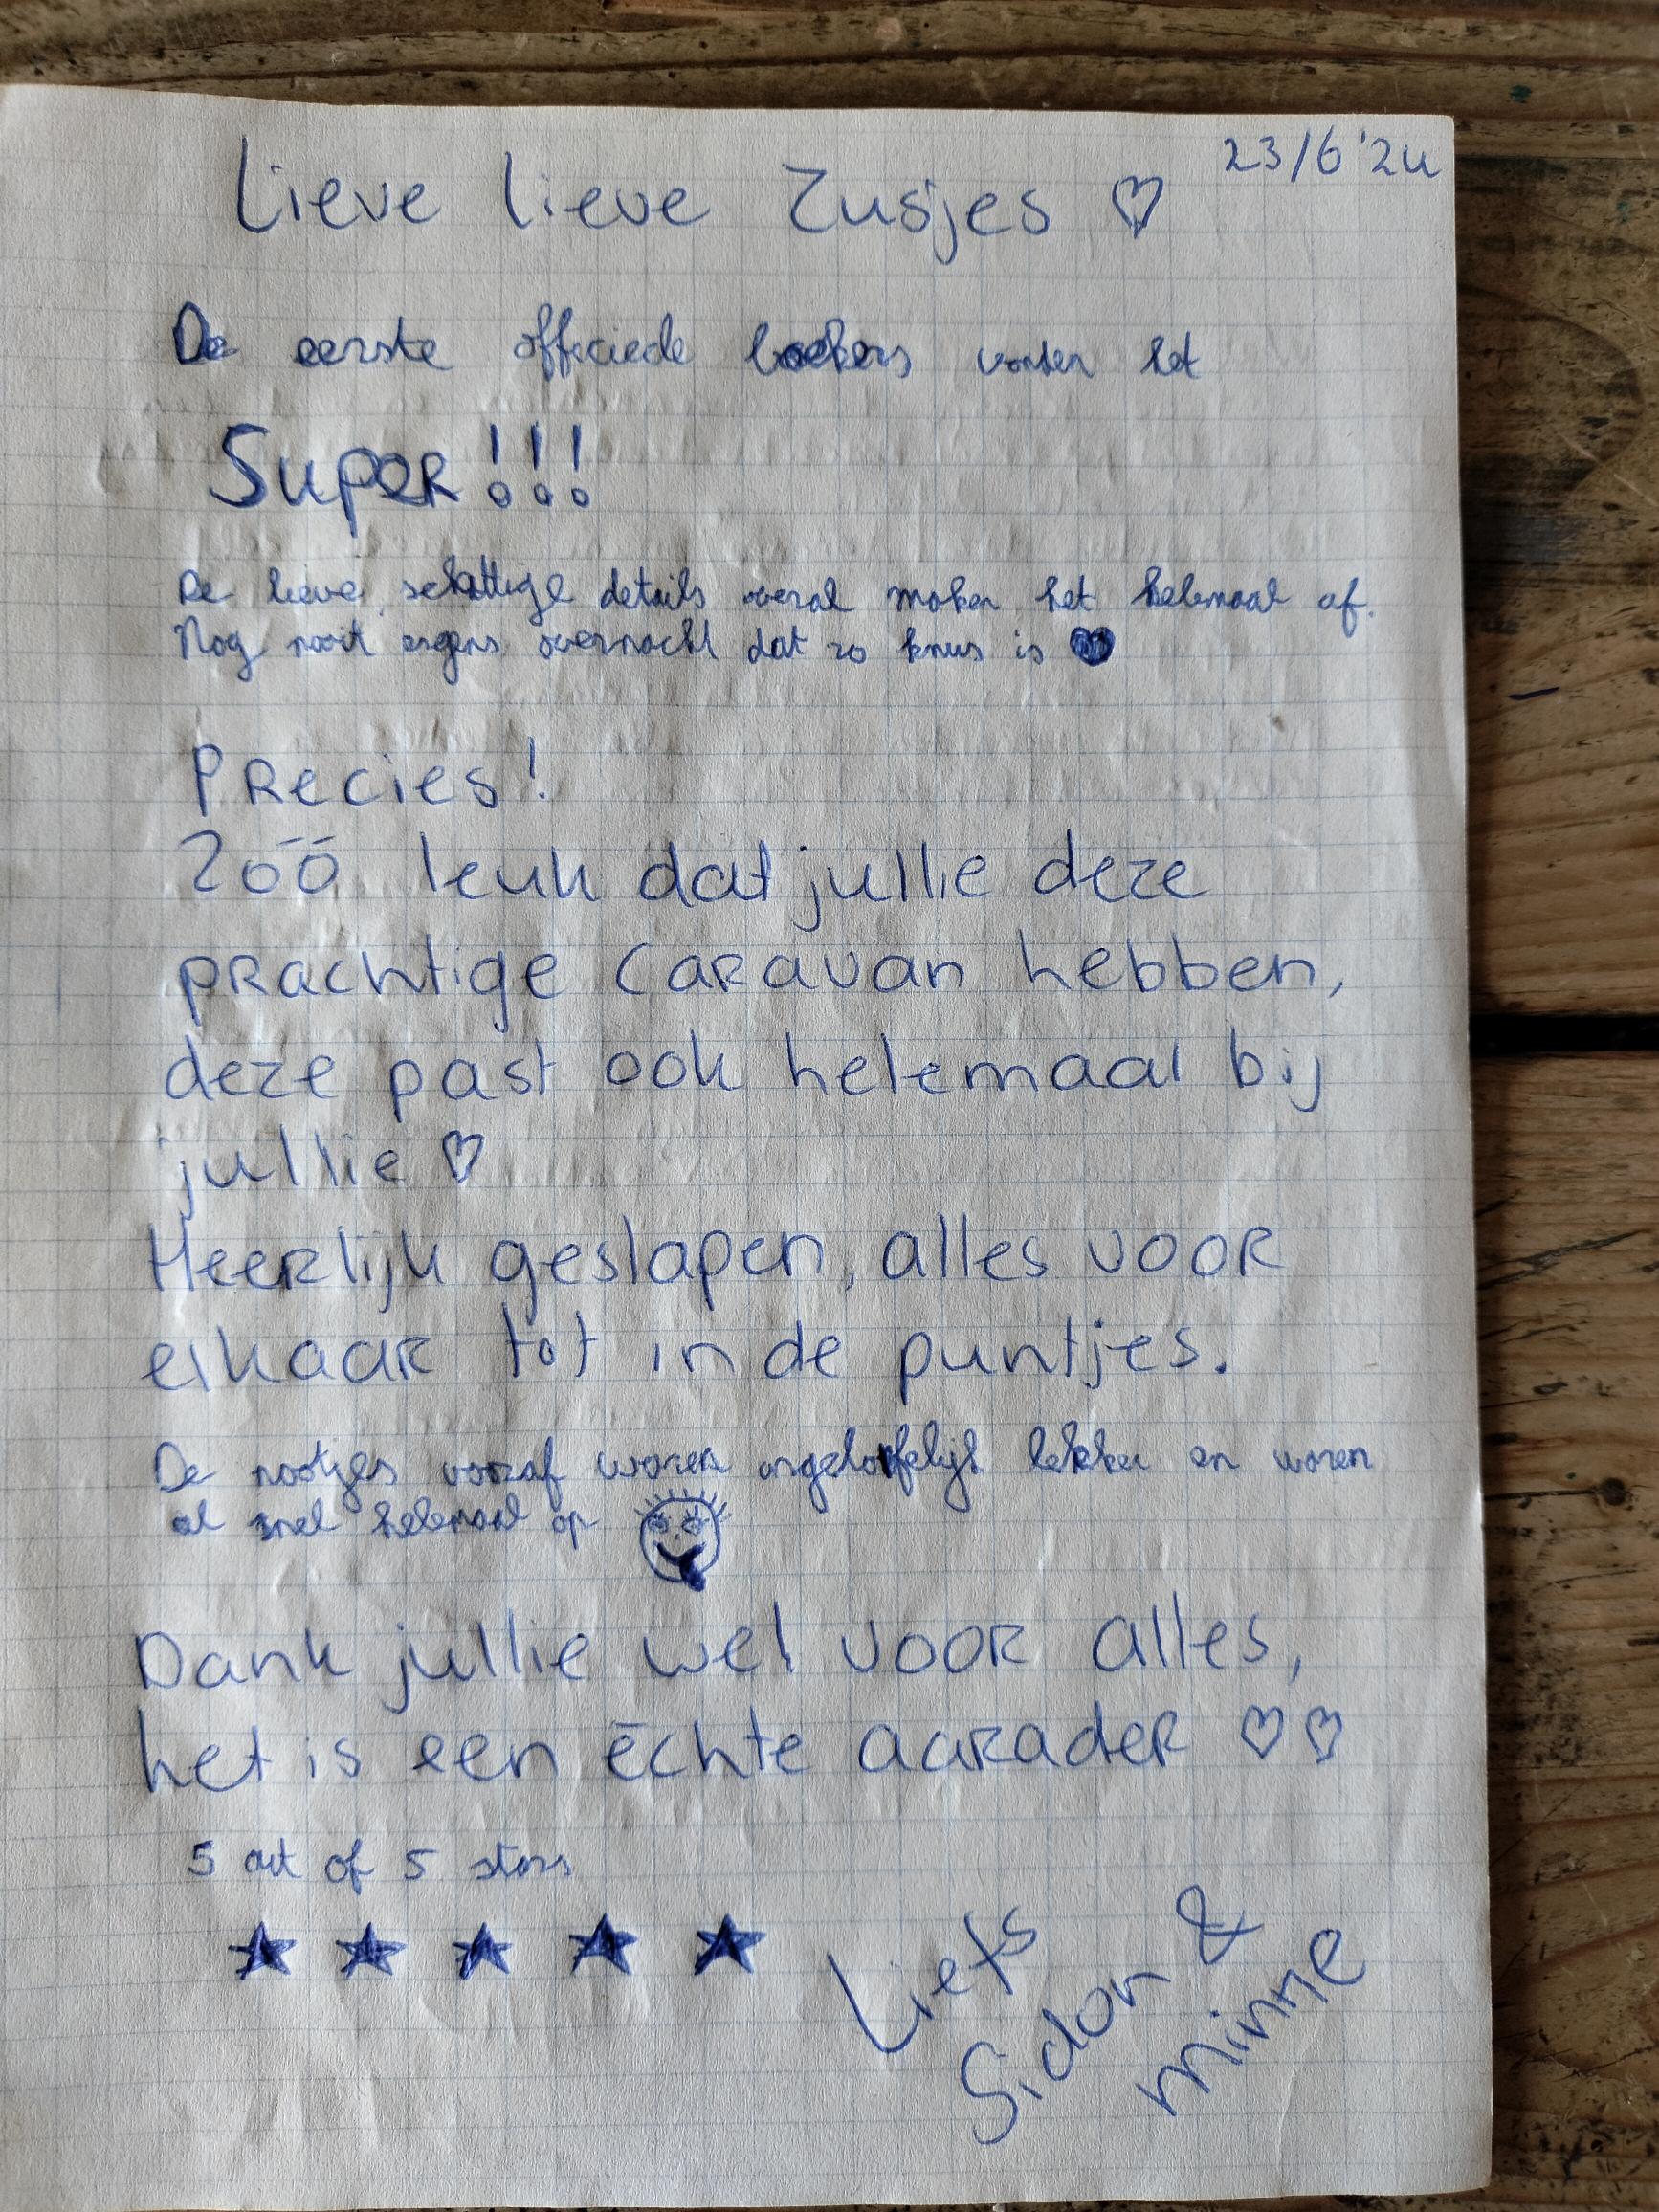 23/6 '24
Lieve lieve Zusjes ♡
De eerste officiele boekers vonden het
SUPER!!!
De lieve, schattige details overal maken het helemaal af.
Nog nooit ergens overnacht dat zo knus is ♥
PRecies!
Zōō leuk dat jullie deze
pRachtige caRavan hebben,
deze past ook helemaal bij
jullie ♡
HeeRlijk geslapen, alles vooR
elkaaR tot in de puntjes.
De nootjes vooraf waren ongelooflijk lekker en waren
al snel helemaal op
Dank jullie wel vooR alles,
het is een ēchte aaRadeR ♡♡
5 out of 5 stars
★ ★ ★ ★ ★
Liefs
Sidon &
Mintje